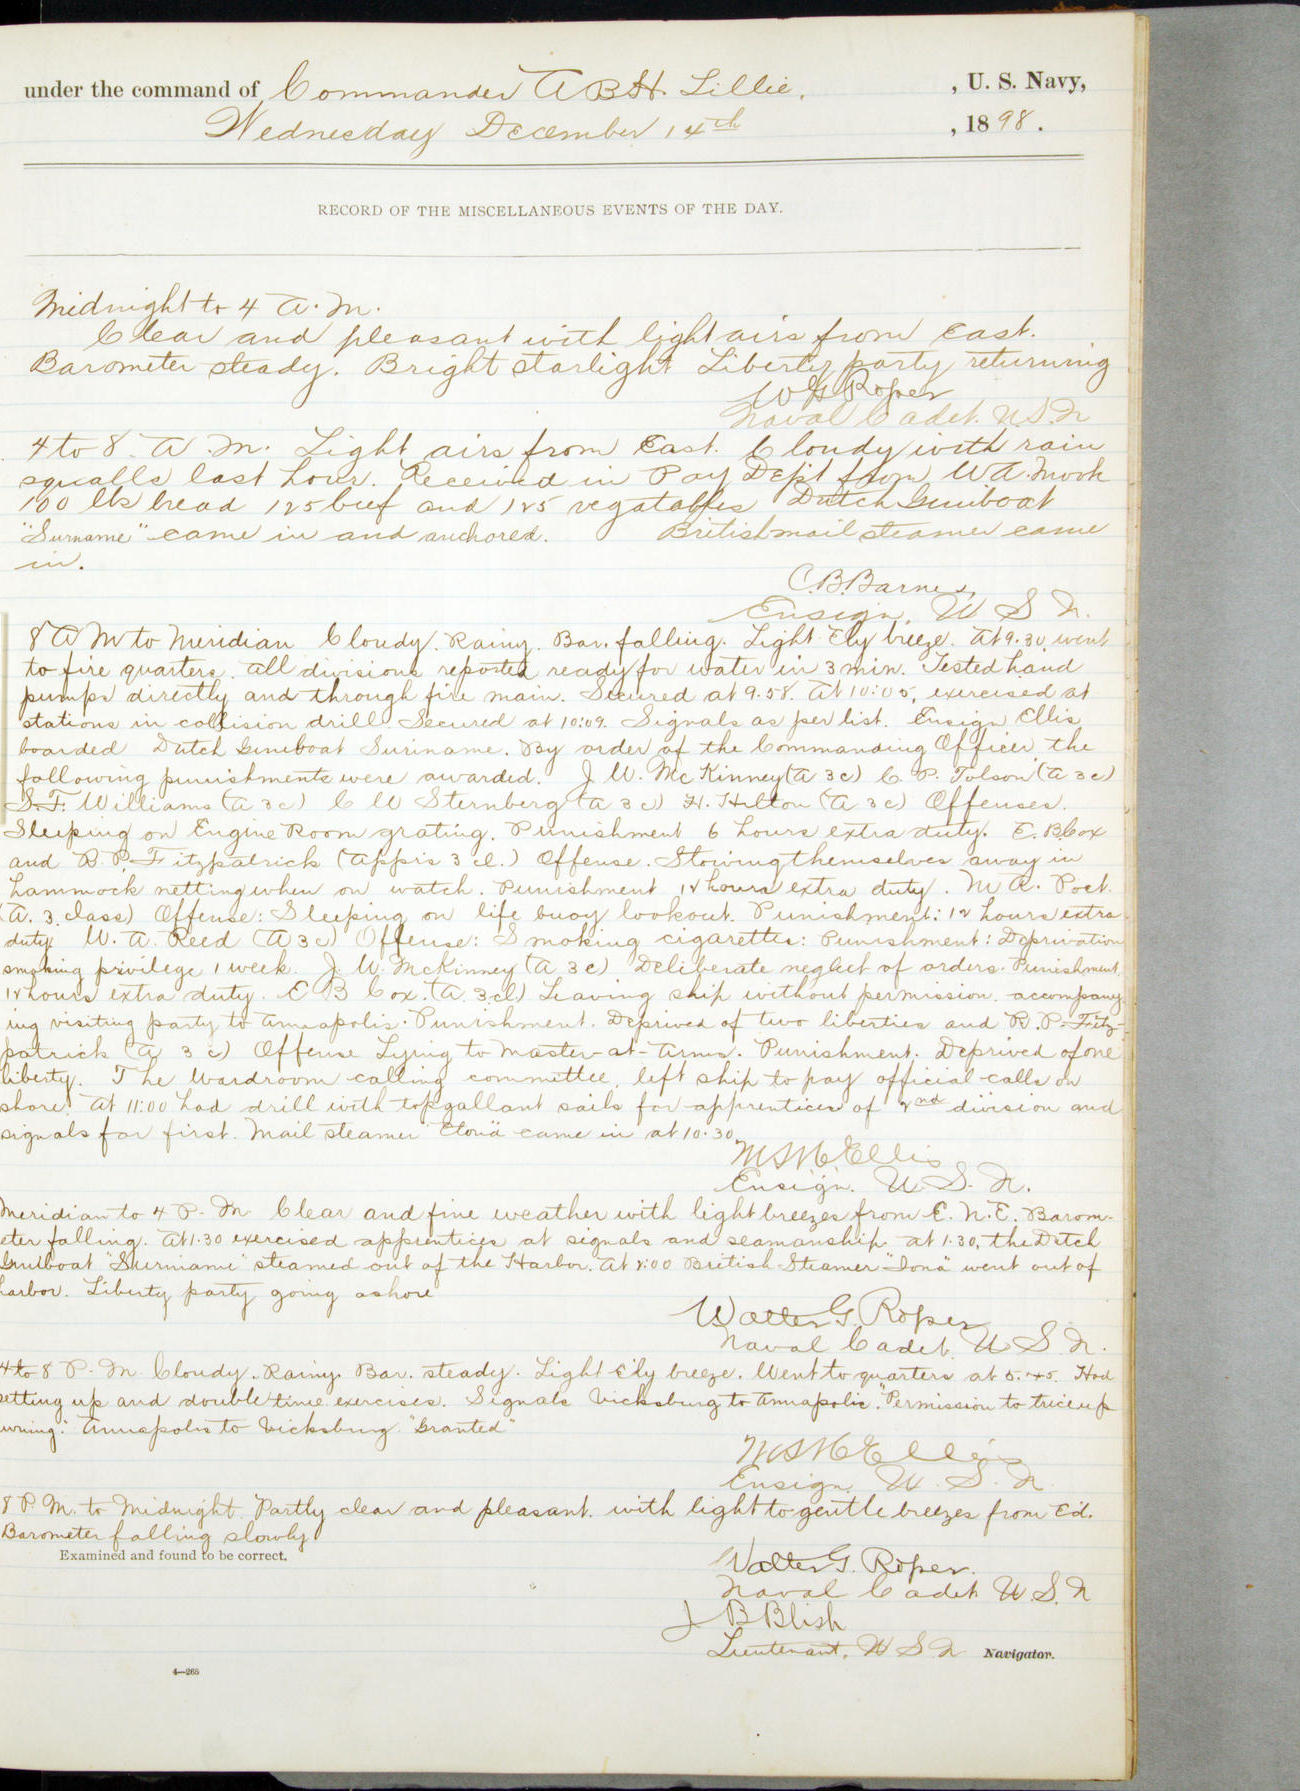 under the command of Commander A B H. Lillie. , U. S. Navy,
Wednesday December 14th , 1898.
RECORD OF THE MISCELLANEOUS EVENTS OF THE DAY.
Midnight to 4 A. M.
Clear and pleasant with light airs from East.
Barometer steady. Bright starlight Liberty party returning
W G Roper
Naval Cadet. U.S.N
4 to 8. A. M. Light airs from East. Cloudy with rain
squalls last hour. Received in Pay Dep't from W A. Mook
100 lbs bread 125 beef and 125 vegatables Dutch Gunboat
"Surname" came in and anchored. British mail steamer came
in.
C. B. Barnes,
Ensign, U S N.
8 A M to Meridian Cloudy. Rainy. Bar. falling. Light Ely breeze. At 9.30 went
to fire quarters. All divisions reported ready for water in 3 min. Tested hand
pumps directly and through fire main. Secured at 9.58. At 10:05, exercised at
stations in collision drill. Secured at 10:09. Signals as per list. Ensign Ellis
boarded Dutch Gunboat Suriname. By order of the Commanding Officer the
following punishments were awarded. J. W. McKinney (A 3c) C. P. Tolson (A 3c)
S. F. Williams (A 3c) C W Sternberg (A 3c) H. Hilton (A 3c) Offenses.
Sleeping on Engine Room grating. Punishment 6 hours extra duty. E. B. Cox
and R. P. Fitzpatrick (App's 3 cl.) Offense. Stowing themselves away in
hammock netting when on watch. Punishment 12 hours extra duty. M R. Post.
(A. 3. class) Offense: Sleeping on life buoy lookout. Punishment: 12 hours extra
duty W. A. Reed (A 3c) Offense: Smoking cigarettes: Punishment: Deprivation
smoking privilege 1 week. J. W. McKinney (A 3c) Deliberate neglect of orders. Punishment
12 hours extra duty. E B Cox. (A. 3. cl) Leaving ship without permission. accompany-
ing visiting party to Annapolis. Punishment. Deprived of two liberties and R. P. Fitz-
patrick (A 3 c) Offense Lying to Master-at-Arms. Punishment. Deprived of one
liberty. The Wardroom calling committee, left ship to pay official calls on
shore. At 11:00 had drill with top gallant sails for apprentices of 2nd division and
signals for first. Mail steamer came in at 10.30.
M S M C Ellis
Ensign. U. S. N.
Meridian to 4 P. M. Clear and fine weather with light breezes from E. N. E. Barom-
eter falling. At 1.30 exercised apprentices at signals and seamanship at 1.30, the Dutch
Gunboat "Surinami" steamed out of the Harbor. At 2:00 British Steamer "Iona" went out of
harbor. Liberty party going ashore
Walter G. Roper
Naval Cadet. U. S. N.
4 to 8 P. M. Cloudy. Rainy. Bar. steady. Light E'ly breeze. Went to quarters at 5.45. Had
setting up and double time exercises. Signals Vicksburg to Annapolis. "Permission to trice up
awning." Annapolis to Vicksburg "Granted"
M S M C Ellis
Ensign, U. S. N.
8 P. M. to Midnight. Partly clear and pleasant. with light to gentle breezes from E'd.
Barometer falling slowly
Examined and found to be correct.
Walter G. Roper.
Naval Cadet. U. S. N
J B Blish
Lieutenant, U S N Navigator.
4—265